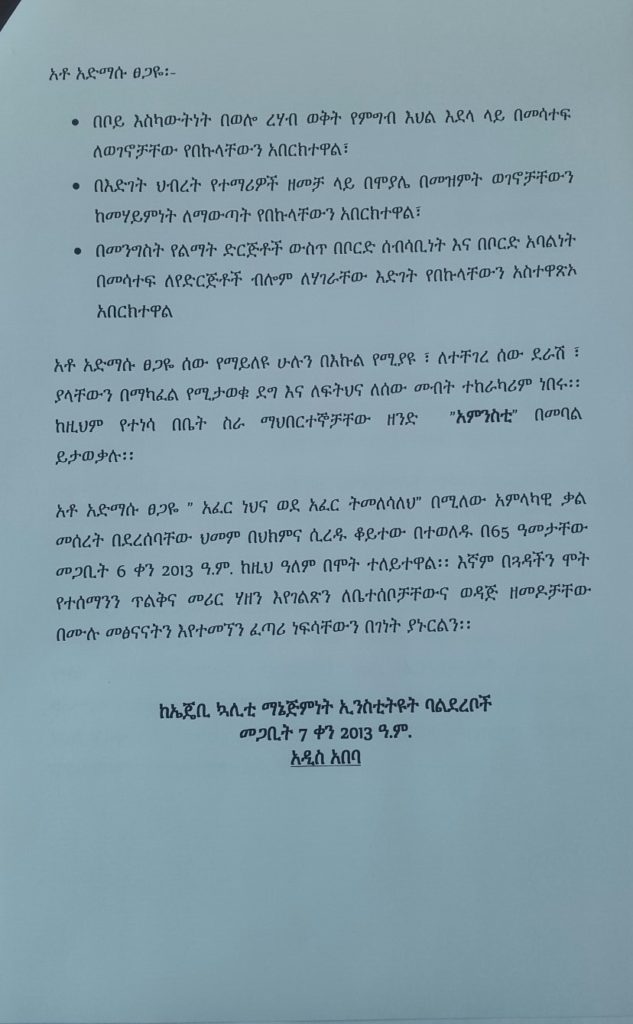 አቶ አድማሱ ፀጋዬ፡-
• በቦይ እስካውትነት በወሎ ረሃብ ወቅት የምግብ እህል እደላ ላይ በመሳተፍ
ለወገኖቻቸው የበኩላቸውን አበርክተዋል፣
• በእድገት ህብረት የተማሪዎች ዘመቻ ላይ በሞያሌ በመዝመት ወገኖቻቸውን
ከመሃይምነት ለማውጣት የበኩላቸውን አበርክተዋል፣
• በመንግስት የልማት ድርጅቶች ውስጥ በቦርድ ሰብሳቢነት እና በቦርድ አባልነት
በመሳተፍ ለየድርጅቶች ብሎም ለሃገራቸው እድገት የበኩላቸውን አስተዋጽኦ
አበርክተዋል
አቶ አድማሱ ፀጋዬ ሰው የማይለዩ ሁሉን በእኩል የሚያዩ ፣ ለተቸገረ ሰው ደራሽ ፣
ያላቸውን በማካፈል የሚታወቁ ደግ እና ለፍትህና ለሰው መብት ተከራካሪም ነበሩ፡፡
ከዚህም የተነሳ በቤት ስራ ማህበርተኞቻቸው ዘንድ "አምንስቲ" በመባል
ይታወቃሉ፡፡
አቶ አድማሱ ፀጋዬ " አፈር ነህና ወደ አፈር ትመለሳለህ" በሚለው አምላካዊ ቃል
መሰረት በደረሰባቸው ህመም በህክምና ሲረዱ ቆይተው በተወለዱ በ65 ዓመታቸው
መጋቢት 6 ቀን 2013 ዓ.ም. ከዚህ ዓለም በሞት ተለይተዋል፡፡ እኛም በጓዳችን ሞት
የተሰማንን ጥልቅና መሪር ሃዘን እየገልጽን ለቤተሰቦቻቸውና ወዳጅ ዘመዶቻቸው
በሙሉ መፅናናትን እየተመኘን ፈጣሪ ነፍሳቸውን በገነት ያኑርልን፡፡
ከኤጄቢ ኳሊቲ ማኔጅምነት ኢንስቲትዩት ባልደረቦች
መጋቢት 7 ቀን 2013 ዓ.ም.
አዲስ አበባ